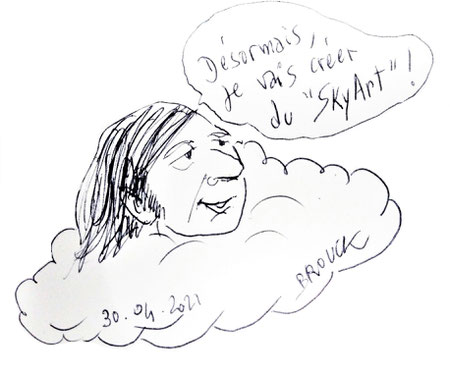 Désormais,
je vais créer
du "SkyArt"!
30.04.2021
BROUCK